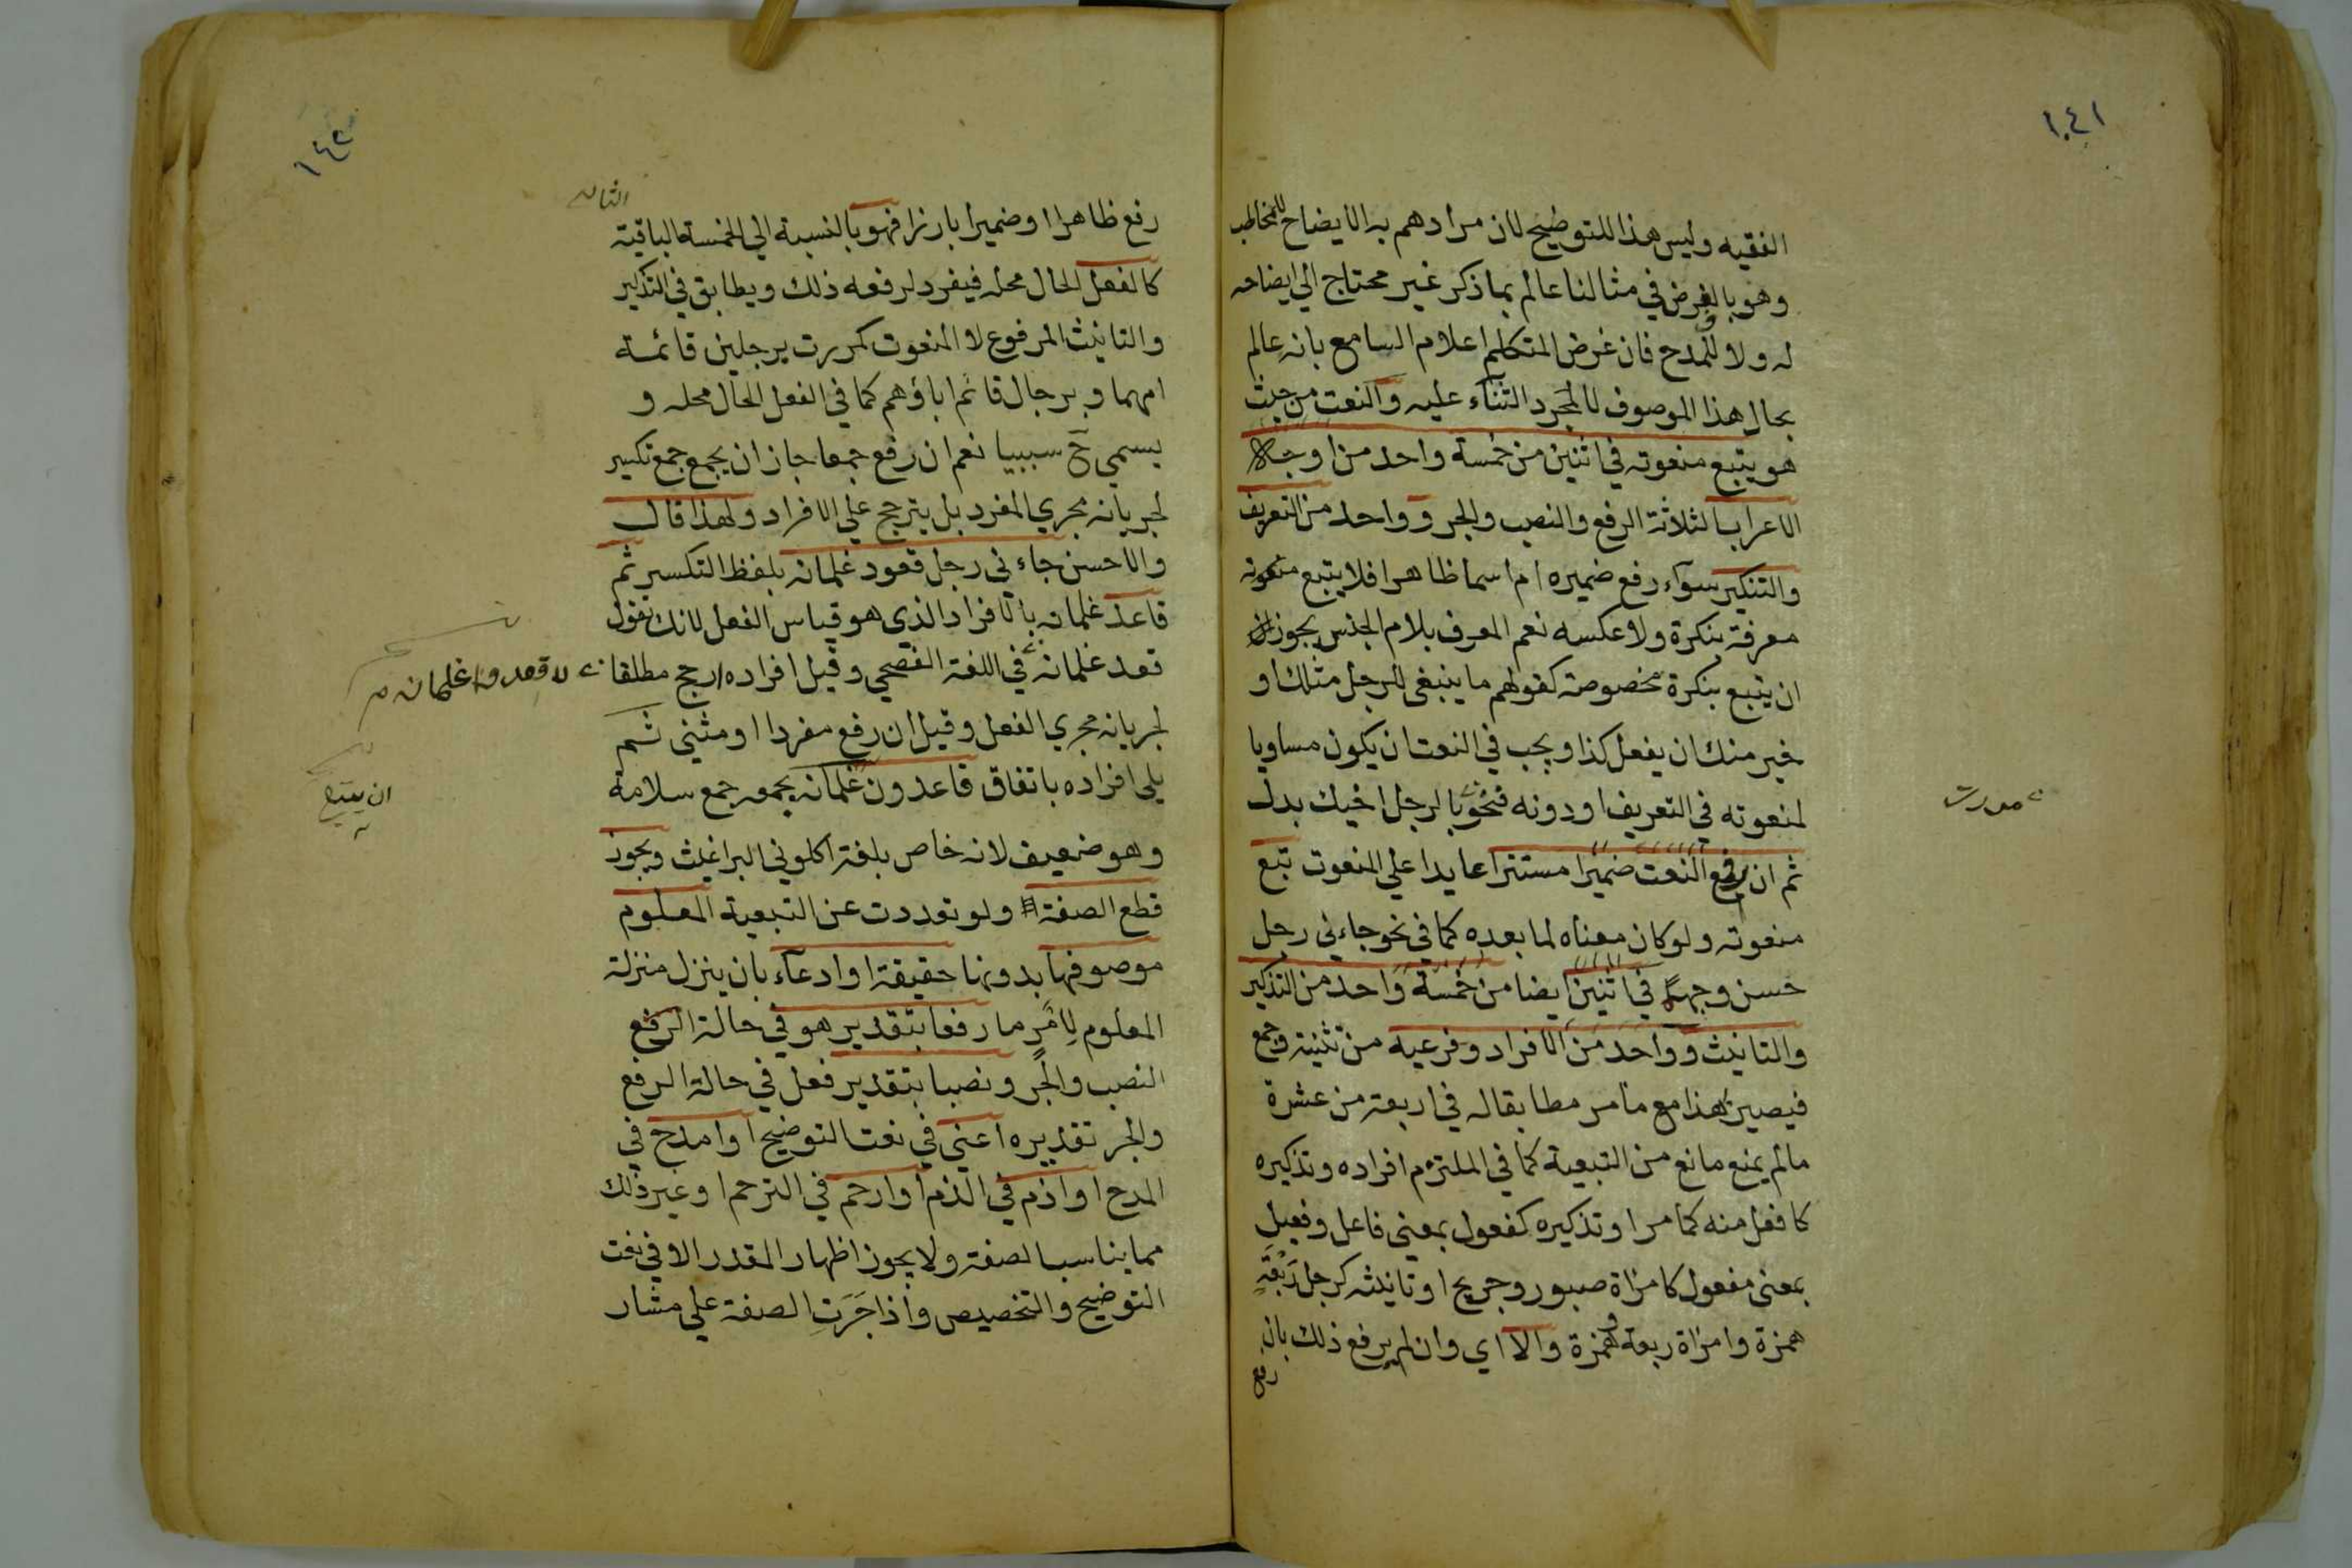 ١٤١
الفقيه وليس هذا للتوضيح لان مرادهم به الايضاح للمخاطب
وهو بالفرض في مثالنا عالم بما ذكر غير محتاج الي ايضاحه
له ولا للمدح فان غرض المتكلم اعلام السامع بانه عالم
بحال هذا الموصوف لا لمجرد الثناء عليه والنعت من حيث
هو يتبع منعوته في اثنين من خمسة واحد من اوجه
الاعراب الثلاثة الرفع والنصب والجر وواحد من التعريف
والتنكير سواء رفع ضميره ام اسما ظاهرا فلا يتبع منعوته
معرفة بنكرة ولا عكسه نعم المعرف بلام الجنس يجوز
ان يتبع بنكرة مخصوصة كقولهم ما ينبغي للرجل مثلك او
خير منك ان يفعل كذا ويجب في النعت ان يكون مساويا
لمنعوته في التعريف او دونه فنحو بالرجل اخيك بدل
مررت
ثم ان رفع النعت ضميرا مستترا عايدا علي المنعوت تبع
منعوته ولو كان معناه لما بعده كما في نحو جاءني رجل
حسن وجهه في اثنين ايضا من خمسة واحد من التذكير
والتانيث وواحد من الافراد وفرعيه من تثنية وجمع
فيصير بهذا مع ما مر مطابقا له في اربعة من عشرة
مالم يمنع مانع من التبعية كما في الملتزم افراده وتذكيره
كافعل منه كما مر او تذكيره كفعول بمعني فاعل وفعيل
بمعني مفعول كامراة صبور وجريح او تانيثه كرجل رَبْعَةٍ
همزة وامراة ربعة وهمزة والا اي وان لم يرفع ذلك بان
رفع
١٤٢
رفع ظاهرا او ضميرا بارزا فهو بالنسبة الي الخمسة الباقية
كالفعل الحال محله فيفرد لرفعه ذلك ويطابق في التذكير
والتانيث المرفوع لا المنعوت كمررت برجلين قائمة
امهما وبرجال قائم اباؤهم كما في الفعل الحال محله و
يسمي ح سببيا نعم ان رفع جمعا جاز ان يجمع جمع تكسير
لجريانه مجري المفرد بل يترجح علي الافراد ولهذا قال
والاحسن جاءني رجل قعود غلمانه بلفظ التكسير ثم
قاعد غلمانه بالافراد الذي هو قياس الفعل لانك تقول
قعد غلمانه في اللغة الفصحي وقيل افراده ارجح مطلقا
لا قعدوا غلمانه
لجريانه مجري الفعل وقيل ان رفع مفردا او مثني ثم
يلي افراده باتفاق قاعدون غلمانه بجمعه جمع سلامة
ان يتبع
وهو ضعيف لانه خاص بلغة اكلوني البراغيث ويجوز
قطع الصفة ولو تعددت عن التبعية المعلوم
موصوفها بدونها حقيقة او ادعاء بان ينزل منزلة
المعلوم لامر ما رفعا بتقدير هو في حالة الرفع
النصب والجر ونصبا بتقدير فعل في حالة الرفع
والجر تقديره اعني في نعت التوضيح او امدح في
المدح او اذم في الذم او ارحم في الترحم او غير ذلك
مما يناسب الصفة ولا يجوز اظهار المقدر الا في نعت
التوضيح والتخصيص واذا جَرَتِ الصفة علي مشار